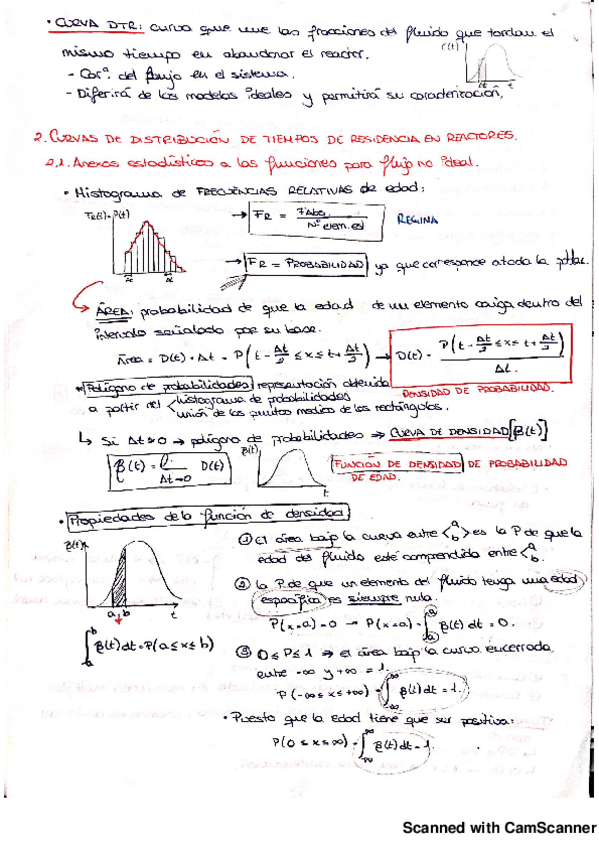 • CURVA DTR: curva que une las fracciones del fluido que tardan el
mismo tiempo en abandonar el reactor.
C(t)
t
- Carª. del flujo en el sistema.
- Diferirá de los modelos ideales y permitirá su caracterización.
2. CURVAS DE DISTRIBUCIÓN DE TIEMPOS DE RESIDENCIA EN REACTORES.
2.1. Anexos estadísticos a las funciones para flujo no ideal.
• Histograma de FRECUENCIAS RELATIVAS de edad:
→ FR = F Abs. / Nº elem. es
→ FR = PROBABILIDAD ya que corresponde a toda la poblac.
ÁREA: probabilidad de que la edad de un elemento caiga dentro del
intervalo señalado por su base.
Área = D(t) · Δt = P(t - Δt/2 ≤ x ≤ t + Δt/2) → D(t) = P(t - Δt/2 ≤ x ≤ t + Δt/2) / Δt.
DENSIDAD DE PROBABILIDAD.
• Polígono de probabilidades: representación obtenida
a partir del < histograma de probabilidades
unión de los puntos medios de los rectángulos.
↳ Si Δt≈0 → polígono de probabilidades → CURVA DE DENSIDAD [β(t)]
β(t) = l. Δt→0 D(t)
β(t)
t
FUNCIÓN DE DENSIDAD DE PROBABILIDAD
DE EDAD.
• Propiedades de la función de densidad
β(t)
a b t
∫ₐᵇ β(t) dt = P(a ≤ x ≤ b)
① El área bajo la curva entre < a b > es la P de que la
edad del fluido esté comprendida entre < a b.
② La P. de que un elemento del fluido tenga una edad
específica es siempre nula.
P(x=a) = 0 → P(x=a) = ∫ₐᵃ β(t) dt = 0.
③ 0 ≤ P ≤ 1 → el área bajo la curva encerrada
entre -∞ y +∞ = 1.
P(-∞ ≤ x ≤ +∞) = ∫ β(t) dt = 1.
• Puesto que la edad tiene que ser positiva:
P(0 ≤ x ≤ ∞) = ∫ β(t) dt = 1.
Scanned with CamScanner